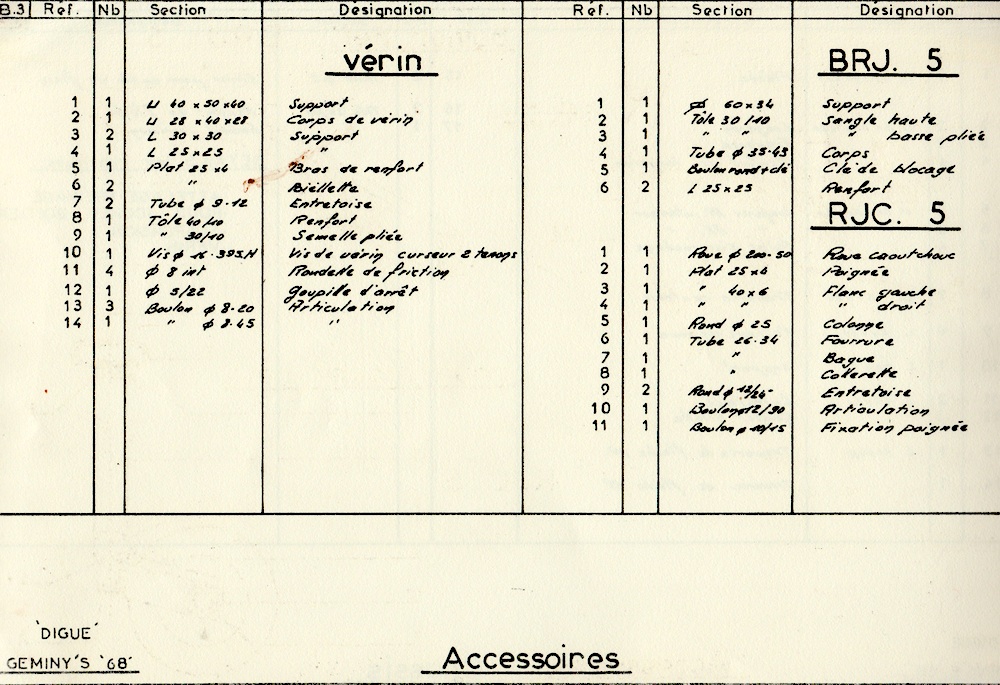 B.3 Réf. Nb Section Désignation Réf. Nb Section Désignation
vérin
1 1 U 40 x 50 x 40 Support
2 1 U 28 x 40 x 28 Corps de vérin
3 2 L 30 x 30 Support
4 1 L 25 x 25 "
5 1 Plat 25 x 4 Bras de renfort
6 2 " Biéllette
7 2 Tube ϕ 9-12 Entretoise
8 1 Tôle 40/10 Renfort
9 1 " 30/10 Semelle pliée
10 1 Vis ϕ 16 - Vis de vérin curseur 2 tenons
11 4 ϕ 8 int Rondelle de friction
12 1 ϕ 5/22 goupille d'arrêt
13 3 Boulon ϕ 8-20 Articulation
14 1 " ϕ 8-45 "
BRJ. 5
1 1 ϕ 60 x 34 Support
2 1 Tôle 30/10 Sangle haute
3 1 " " " basse pliée
4 1 Tube ϕ 35-43 Corps
5 1 Boulon rond + clé Clé de blocage
6 2 L 25 x 25 Renfort
RJC. 5
1 1 Roue ϕ 200-50 Roue caoutchouc
2 1 Plat 25 x 4 Poignée
3 1 " 40 x 6 Flanc gauche
4 1 " " " droit
5 1 Rond ϕ 25 Colonne
6 1 Tube 26-34 Fourrure
7 1 " Bague
8 1 " Collerette
9 2 Rond ϕ Entretoise
10 1 Boulon ϕ 12/90 Articulation
11 1 Boulon ϕ 10/15 Fixation poignée
'DIGUE'
GEMINY'S '68'
Accessoires